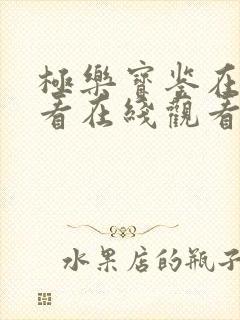 極樂寶鉴在
看在綫觀看
水果店的瓶子